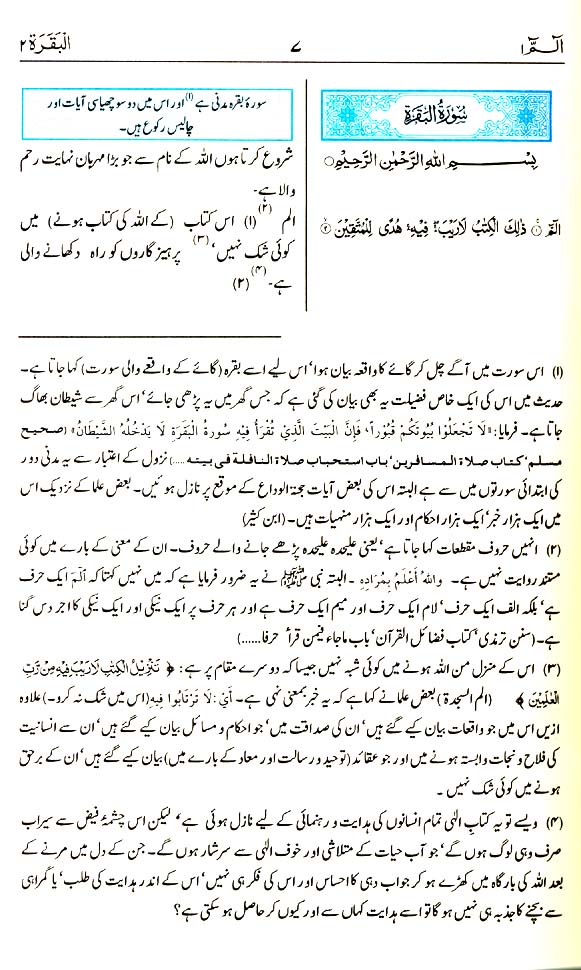 الٓـمّٓ ١
٧
الْبَقَرَة ٢
سُوْرَةُ الْبَقَرَةِ
بِسْــــمِ اللهِ الرَّحْمٰنِ الرَّحِيْمِ ○
الٓمّٓ ۚ ١ ذٰلِكَ الْكِتٰبُ لَا رَيْبَ ۛ فِيْهِ ۛ هُدًى لِّلْمُتَّقِيْنَ ٢
سورۂ بقرہ مدنی ہے (۱) اور اس میں دو سو چھیاسی آیات اور
چالیس رکوع ہیں۔
شروع کرتا ہوں اللہ کے نام سے جو بڑا مہربان نہایت رحم
والا ہے۔
الم (۲) (۱) اس کتاب (کے اللہ کی کتاب ہونے) میں
کوئی شک نہیں' (۳) پرہیزگاروں کو راہ دکھانے والی
ہے۔ (۴) (۲)
(۱) اس سورت میں آگے چل کر گائے کا واقعہ بیان ہوا' اس لیے اسے بقرہ (گائے کے واقعے والی سورت) کہا جاتا ہے۔
حدیث میں اس کی ایک خاص فضیلت یہ بھی بیان کی گئی ہے کہ جس گھر میں یہ پڑھی جائے' اس گھر سے شیطان بھاگ
جاتا ہے۔ فرمایا: «لَا تَجْعَلُوا بُيُوتَكُمْ قُبُوراً، فَإِنَّ الْبَيْتَ الَّذِي تُقْرَأُ فِيهِ سُورَةُ الْبَقَرَةِ لَا يَدْخُلُهُ الشَّيْطَانُ» (صحیح
مسلم' کتاب صلاة المسافرین' باب استحباب صلاة النافلة فی بیته .....) نزول کے اعتبار سے یہ مدنی دور
کی ابتدائی سورتوں میں سے ہے البتہ اس کی بعض آیات حجۃ الوداع کے موقع پر نازل ہوئیں۔ بعض علما کے نزدیک اس
میں ایک ہزار خبر' ایک ہزار احکام اور ایک ہزار منہیات ہیں۔ (ابن کثیر)
(۲) انہیں حروف مقطعات کہا جاتا ہے' یعنی علیحدہ علیحدہ پڑھے جانے والے حروف۔ ان کے معنی کے بارے میں کوئی
مستند روایت نہیں ہے۔ وَاللهُ أَعْلَمُ بِمُرَادِهِ ۔ البتہ نبی ﷺ نے یہ ضرور فرمایا ہے کہ میں نہیں کہتا کہ الٓمٓ ایک حرف
ہے' بلکہ الف ایک حرف' لام ایک حرف اور میم ایک حرف ہے اور ہر حرف پر ایک نیکی اور ایک نیکی کا اجر دس گنا
ہے۔ (سنن ترمذی' کتاب فضائل القرآن' باب ماجاء فیمن قرأ حرفا......)
(۳) اس کے منزل من اللہ ہونے میں کوئی شبہ نہیں جیسا کہ دوسرے مقام پر ہے: ﴿ تَنْزِيْلُ الْكِتٰبِ لَا رَيْبَ فِيْهِ مِنْ رَّبِّ
الْعٰلَمِيْنَ ﴾ (الم السجدة) بعض علما نے کہا ہے کہ یہ خبر بمعنی نہی ہے۔ أَيْ: لَا تَرْتَابُوا فِيهِ (اس میں شک نہ کرو۔) علاوہ
ازیں اس میں جو واقعات بیان کیے گئے ہیں' ان کی صداقت میں' جو احکام و مسائل بیان کیے گئے ہیں' ان سے انسانیت
کی فلاح و نجات وابستہ ہونے میں اور جو عقائد (توحید و رسالت اور معاد کے بارے میں) بیان کیے گئے ہیں' ان کے برحق
ہونے میں کوئی شک نہیں۔
(۴) ویسے تو یہ کتاب الٰہی تمام انسانوں کی ہدایت و رہنمائی کے لیے نازل ہوئی ہے' لیکن اس چشمۂ فیض سے سیراب
صرف وہی لوگ ہوں گے' جو آب حیات کے متلاشی اور خوف الٰہی سے سرشار ہوں گے۔ جن کے دل میں مرنے کے
بعد اللہ کی بارگاہ میں کھڑے ہو کر جواب دہی کا احساس اور اس کی فکر ہی نہیں' اس کے اندر ہدایت کی طلب' یا گمراہی
سے بچنے کا جذبہ ہی نہیں ہو گا تو اسے ہدایت کہاں سے اور کیوں کر حاصل ہو سکتی ہے؟